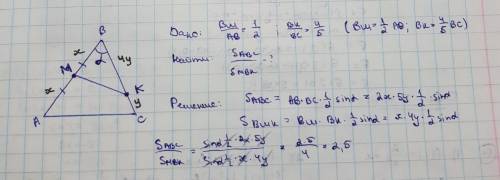 B
x
α
4y
M
x
K
y
A
C
Дано: BM/AB = 1/2 ; BK/BC = 4/5 (BM = 1/2 AB; BK = 4/5 BC)
Найти: S_ABC / S_MBK - ?
Решение: S_ABC = AB · BC · 1/2 sinα = 2x · 5y · 1/2 sinα
S_BMK = BM · BK · 1/2 sinα = x · 4y · 1/2 sinα
S_ABC / S_MBK = sinα · 1/2 · 2x · 5y / sinα · 1/2 · x · 4y = 2·5 / 4 = 2,5